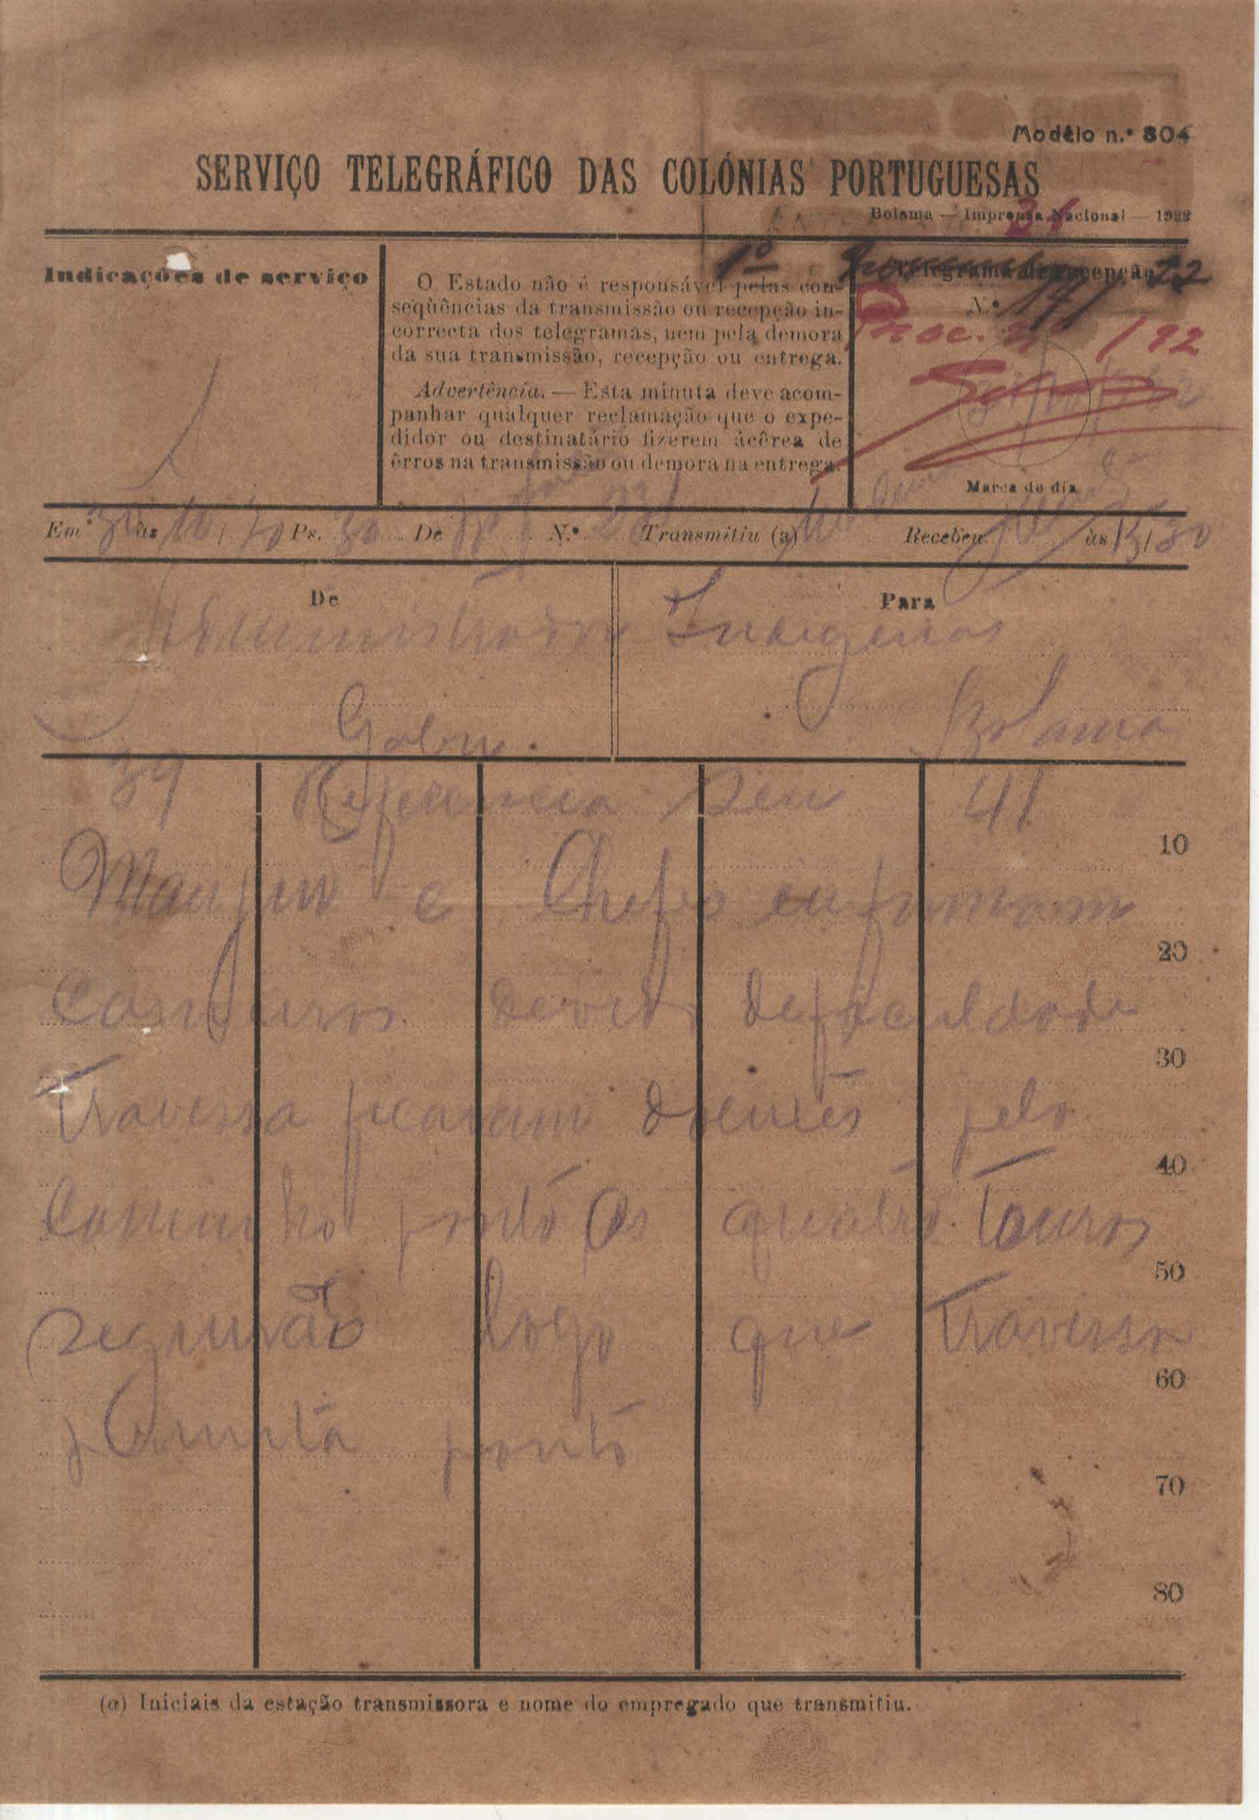 Modêlo n.º 804
SERVIÇO TELEGRÁFICO DAS COLÓNIAS PORTUGUESAS
Bolama — Imprensa Nacional — 1922
Indicações de serviço
O Estado não é responsável pelas con-
seqüências da transmissão ou recepção in-
correcta dos telegramas, nem pela demora
da sua transmissão, recepção ou entrega.
Advertência. — Esta minuta deve acom-
panhar qualquer reclamação que o expe-
didor ou destinatário fizerem àcêrca de
êrros na transmissão ou demora na entrega.
1º
Telegrama de recepção
N.º 171
Proc. 192
Marca do dia
Em às Ps. De N.º Transmitiu (a) Recebeu às 15/30
De
Administrador
Gabu.
Para
Indigenas
Bolama
39 Referencia seu 41
10
e Chefes informam
20
carneiros devido deficuldade
30
Travessa ficaram doentes pelo
40
Caminho ponto Os quatro Touros
50
seguirão logo que travessa
60
permita ponto
70
80
(a) Iniciais da estação transmissora e nome do empregado que transmitiu.